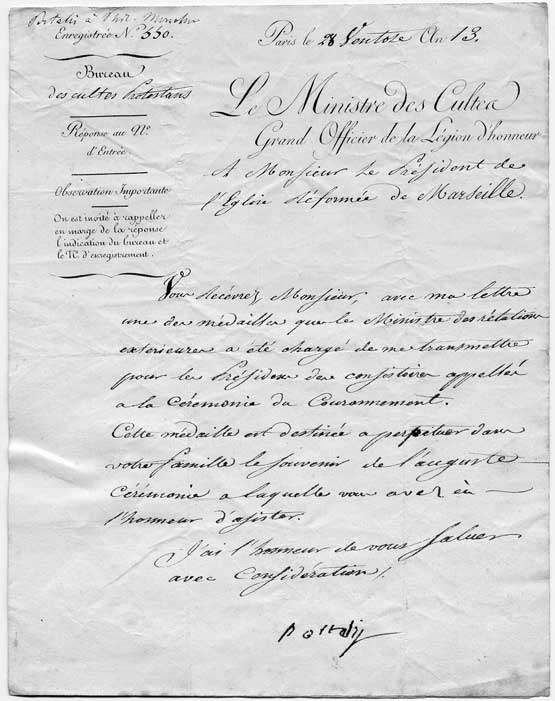 Portalis à
Enregistrée N.° 550.
Bureau
des cultes Protestans
Réponse au N.°
d'Entrée.
Observation Importante
On est invité à rappeller
en marge de la réponse
l'indication du bureau et
le N.° d'enregistrement.
Paris le 28 Ventose An 13.
Le Ministre des Cultes
Grand Officier de la Légion d'honneur
A Monsieur le Président de
l'Eglise Réformée de Marseille.
Vous Recevrez Monsieur, avec ma lettre
une des médailles que le Ministre des rélations
exterieures a été chargé de me transmettre
pour les Présidens des consistoires appellés
a la Cérémonie du Couronnement.
Cette médaille est destinée a perpetuer dans
votre famille le souvenir de l'auguste
Cérémonie a laquelle vous avez eù
l'honneur d'assister.
J'ai l'honneur de vous Saluer
avec Considération.
Portalis